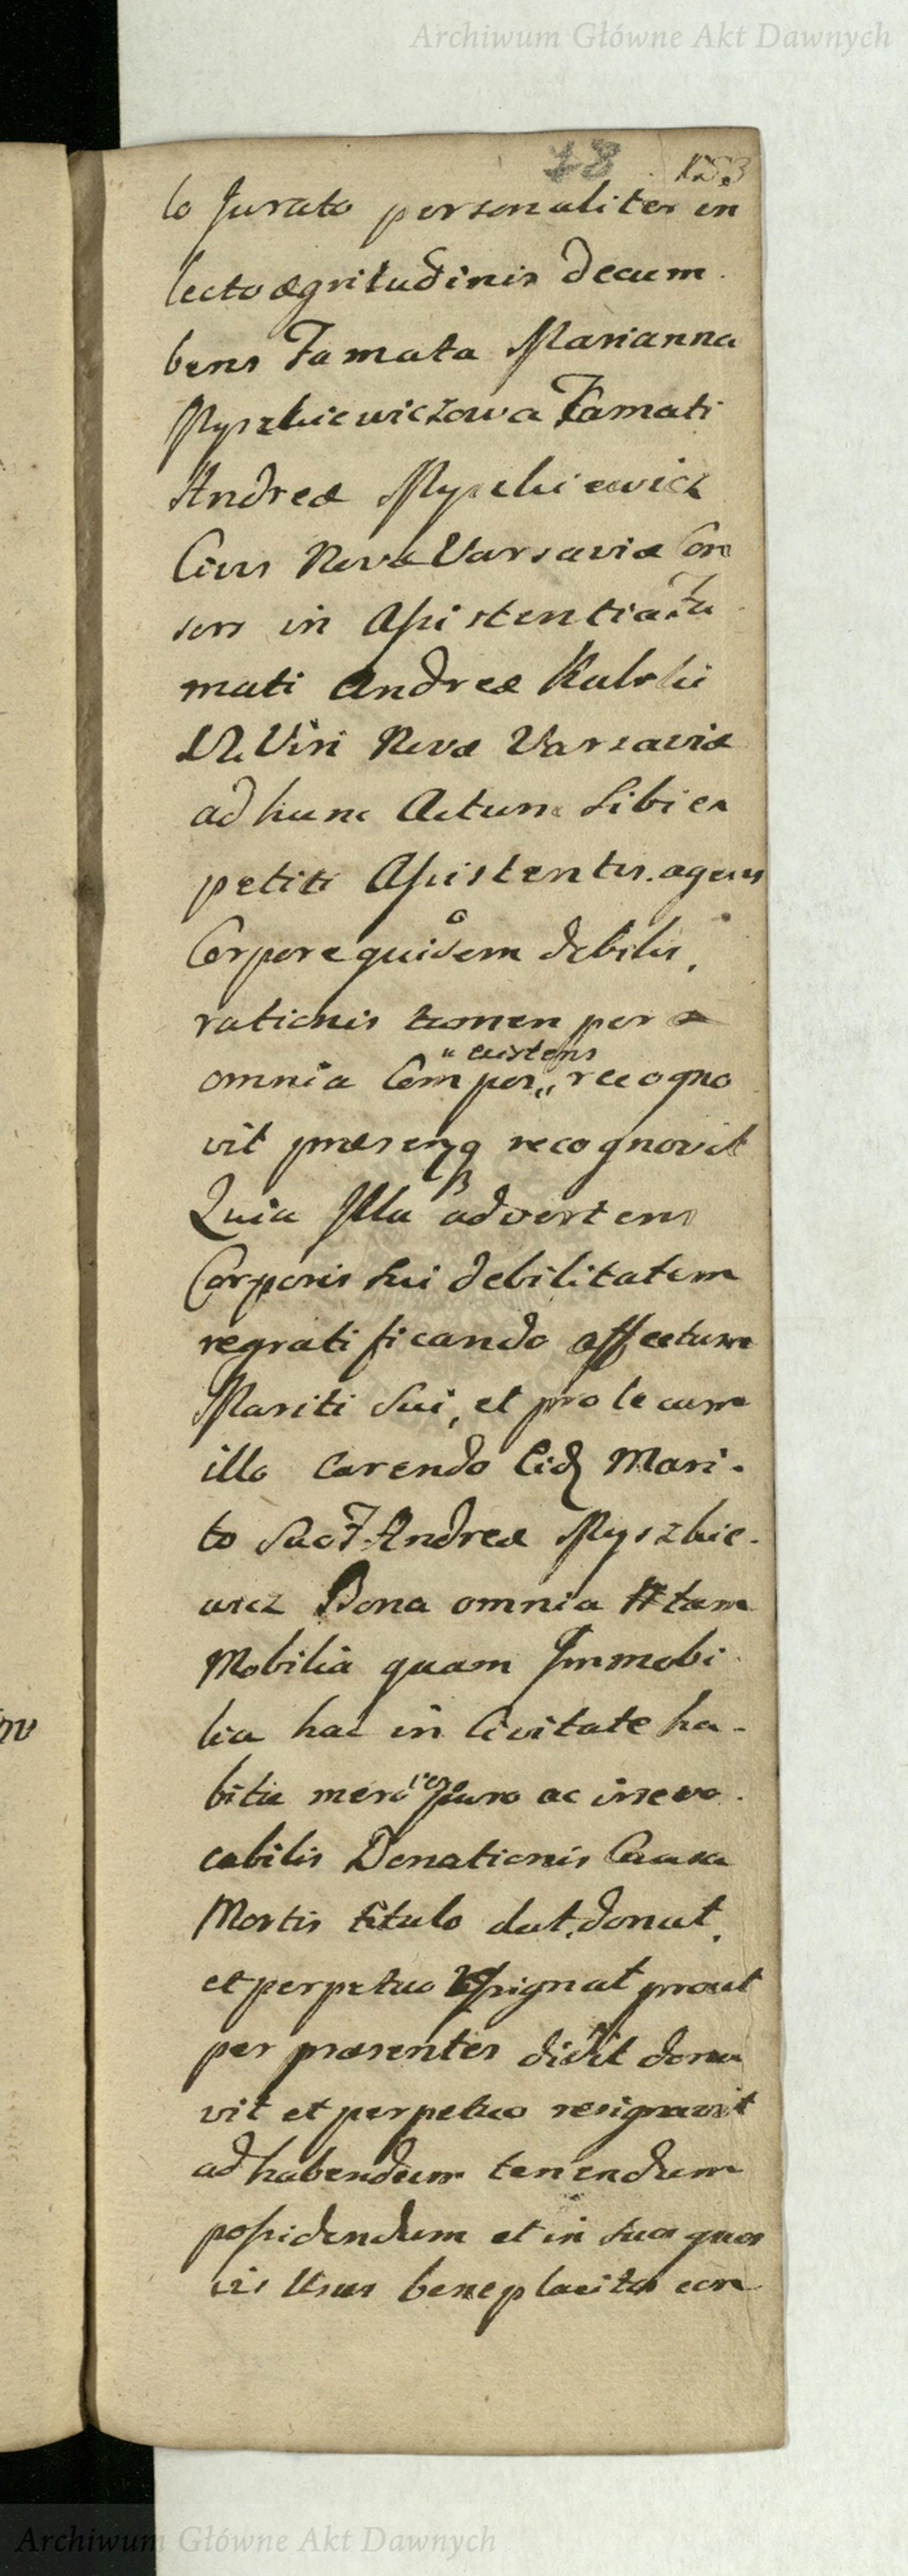 Archiwum Główne Akt Dawnych
lo Jurato personaliter in
lecto ægritudinis decum
bens Famata Marianna
Myszkiewiczowa Famati
Andreæ Myszkiewicz
Civis Novæ Varsaviæ Con
sors in Assistentia Fa
mati Andreæ Kulski
Viri Novæ Varsaviæ
ad hunc Actum Sibi ex
petiti Assistentis agens
Corpore quidem debilis,
rationis tamen per
existens
omnia Compos recogno
vit præsenq recognovit
Quia Illa advertens
Corporis sui debilitatem
regratificando affectum
Mariti Sui, et prole cum
illo Carendo Eid Mari.
to Suo F. Andreæ Myszkie.
wicz Bona omnia tam
Mobilia quam Immobi
lia hac in Civitate ha-
bita mero puro ac irrevo.
cabilis Donationis Causa
Mortis titulo dat, donat,
et perpetuo resignat prout
per præsentes didit dona
vit et perpetuo resignavit
ad habendum tenendum
possidendum et in suos quos
vis Usus beneplacitos con
Archiwum Główne Akt Dawnych